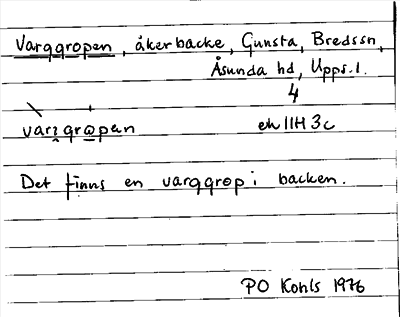 Varggropen, åkerbacke, Gunsta, Bredssn,
Åsunda hd, Upps.l.
4
vargropen ek 11H 3c
Det finns en varggrop i backen.
PO Kohls 1976